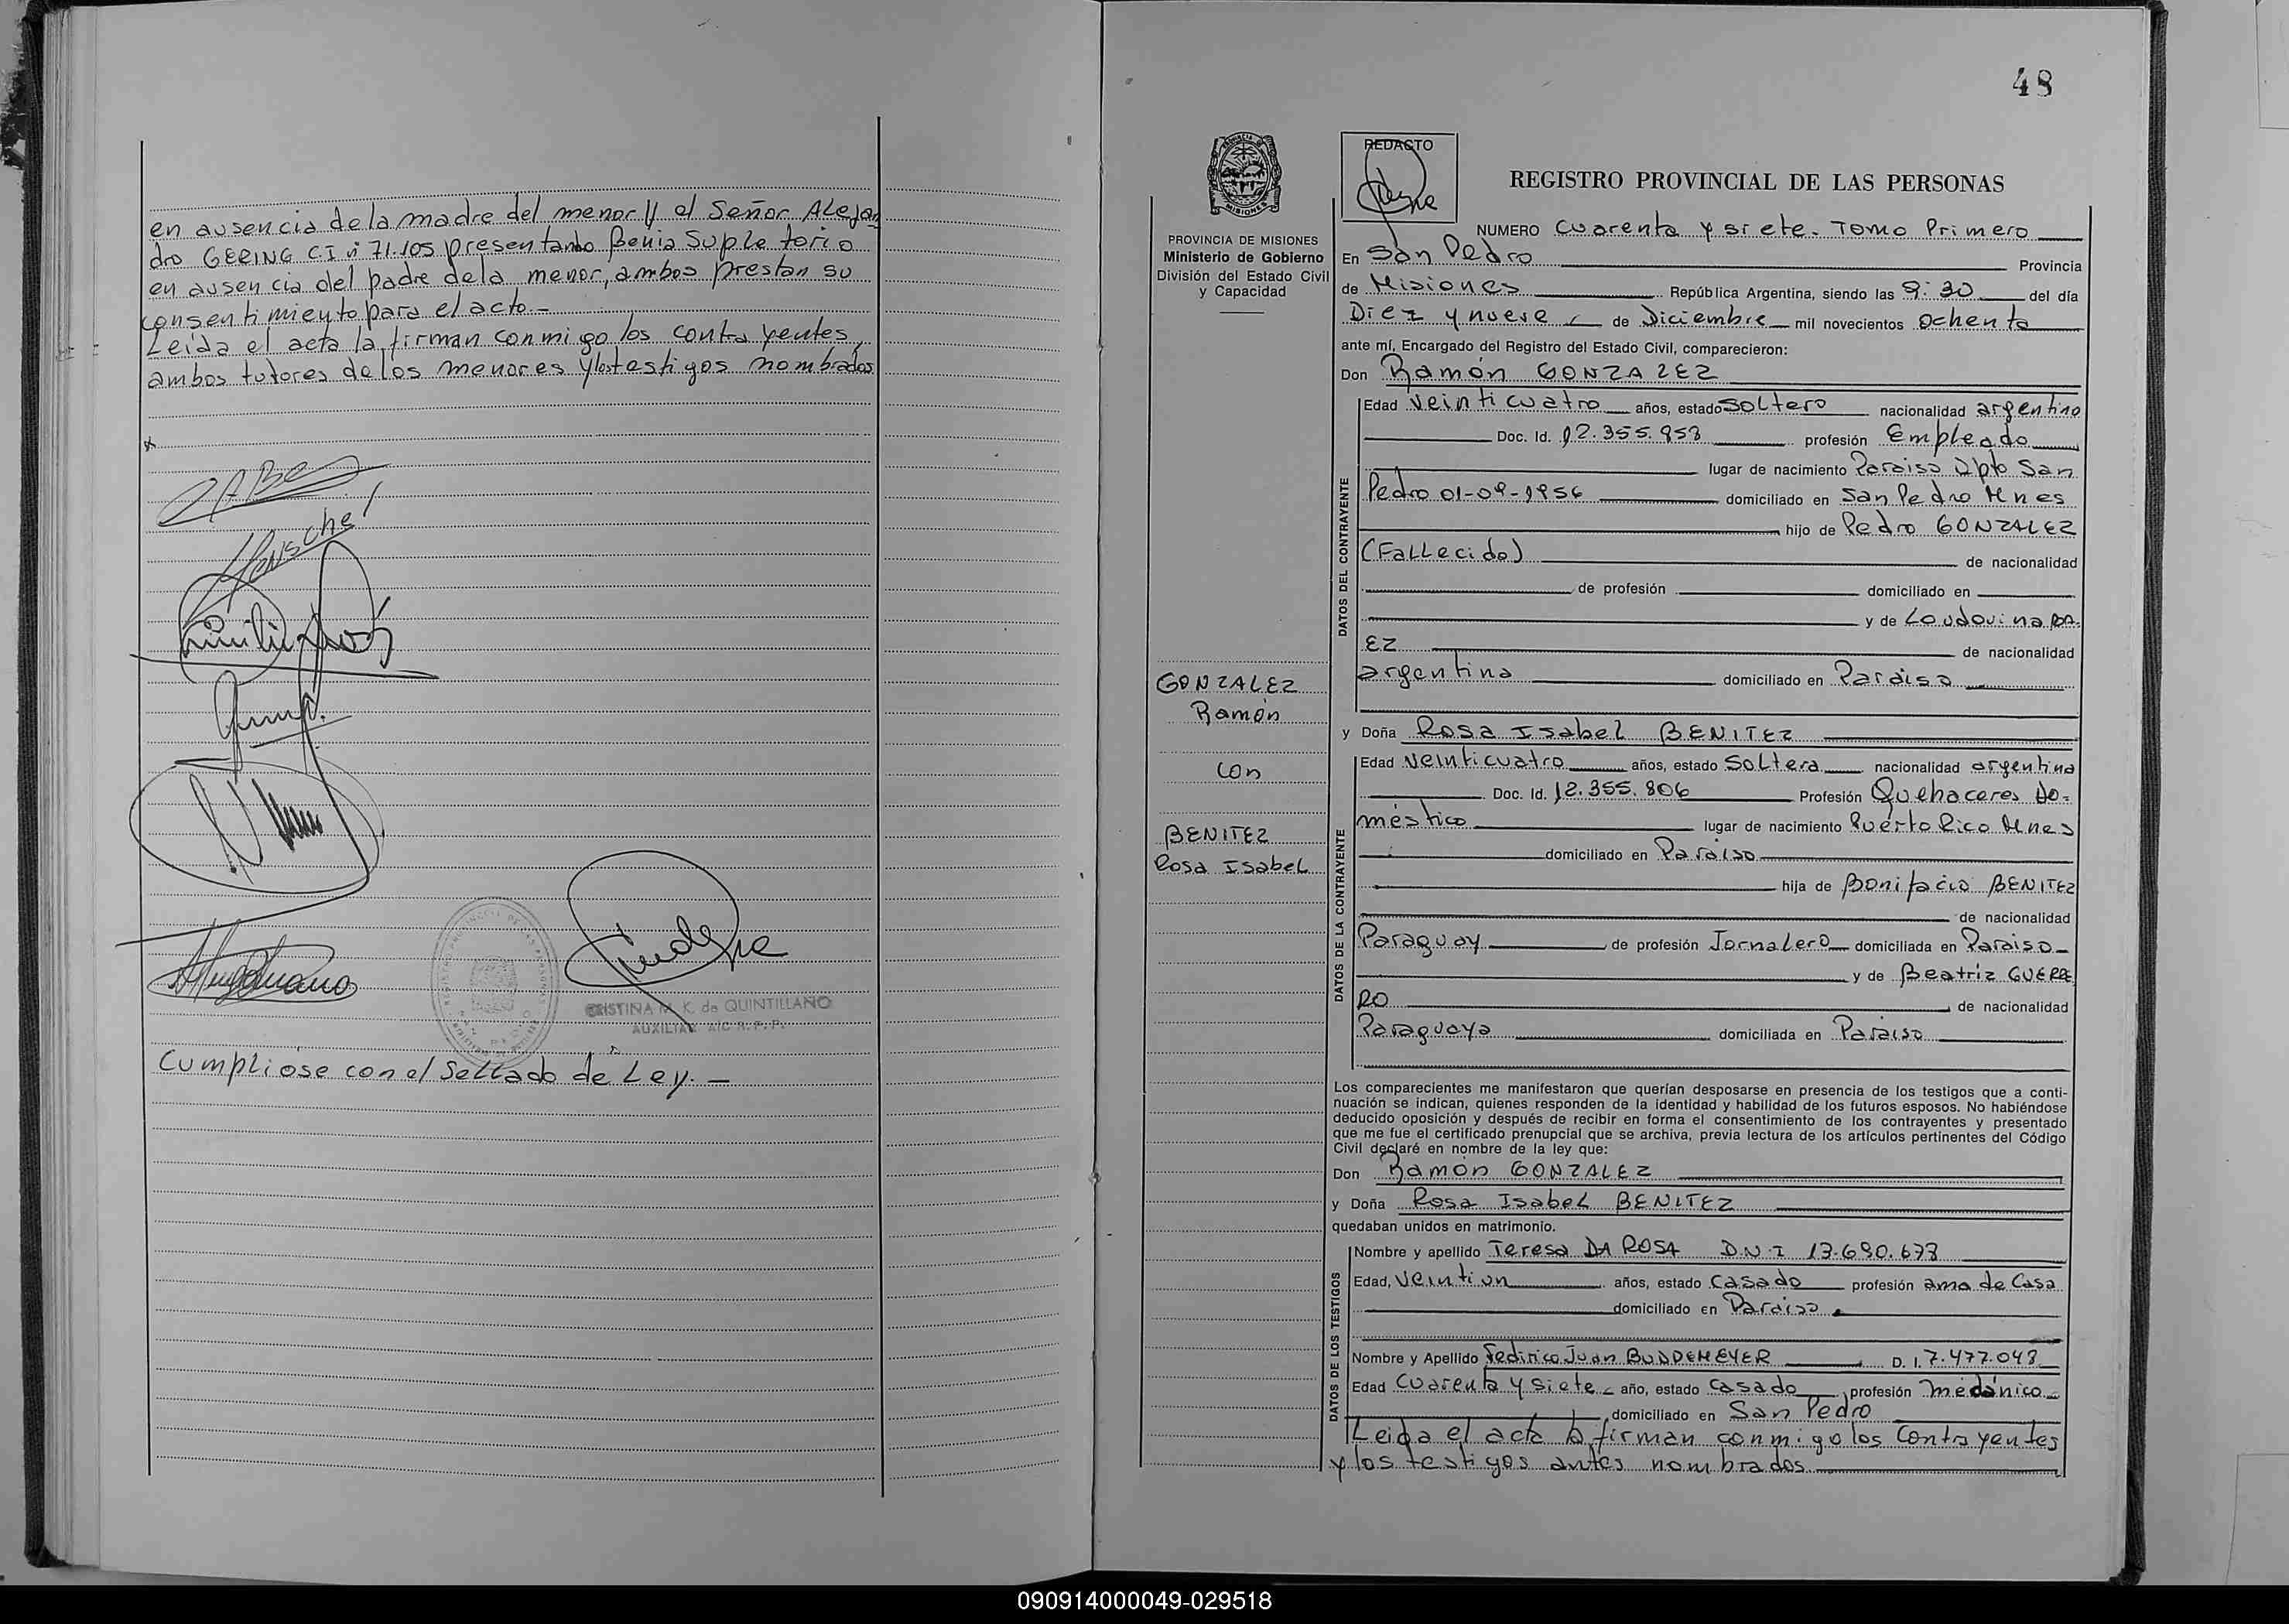 en ausencia de la madre del menor y el Señor Alejan
dro GERING CI nº 71.105 presentando Benia Supletorio
en ausencia del padre de la menor, ambos prestan su
consentimiento para el acto.-
Leída el acta la firman conmigo los contrayentes,
ambos tutores de los menores y los testigos nombrados
CRISTINA M. K. de QUINTILLANO
AUXILIAR A/C R. P. P.
Cumplióse con el Sellado de Ley.-
48
PROVINCIA DE MISIONES
Ministerio de Gobierno
División del Estado Civil
y Capacidad
GONZALEZ
Ramón
con
BENITEZ
Rosa Isabel
REDACTO
REGISTRO PROVINCIAL DE LAS PERSONAS
NUMERO Cuarenta y siete. Tomo Primero
En San Pedro Provincia
de Misiones República Argentina, siendo las 9:30 del día
Diez y nueve de Diciembre mil novecientos ochenta
ante mí, Encargado del Registro del Estado Civil, comparecieron:
Don Ramón GONZALEZ
DATOS DEL CONTRAYENTE
Edad Veinticuatro años, estado Soltero nacionalidad argentino
Doc. Id. 12.355.953 profesión Empleado
lugar de nacimiento Paraiso Dpto San
Pedro 01-09-1956 domiciliado en San Pedro Mnes
hijo de Pedro GONZALEZ
(Fallecido) de nacionalidad
de profesión domiciliado en
y de Loudovina
EZ de nacionalidad
argentina domiciliado en Paraiso
y Doña Rosa Isabel BENITEZ
DATOS DE LA CONTRAYENTE
Edad Veinticuatro años, estado Soltera nacionalidad argentina
Doc. Id. 12.355.806 Profesión Quehaceres Do=
méstico lugar de nacimiento Puerto Rico Mnes
domiciliado en Paraiso
hija de Bonifacio BENITEZ
de nacionalidad
Paraguay de profesión Jornalero domiciliada en Paraiso
y de Beatriz GUERRE
RO de nacionalidad
Paraguaya domiciliada en Paraiso
Los comparecientes me manifestaron que querían desposarse en presencia de los testigos que a conti-
nuación se indican, quienes responden de la identidad y habilidad de los futuros esposos. No habiéndose
deducido oposición y después de recibir en forma el consentimiento de los contrayentes y presentado
que me fue el certificado prenupcial que se archiva, previa lectura de los artículos pertinentes del Código
Civil declaré en nombre de la ley que:
Don Ramón GONZALEZ
y Doña Rosa Isabel BENITEZ
quedaban unidos en matrimonio.
DATOS DE LOS TESTIGOS
Nombre y apellido Teresa DA ROSA D.N.I 13.690.673
Edad, Veintiun años, estado Casado profesión ama de Casa
domiciliado en Paraiso.
Nombre y Apellido Fedirico Juan BUDDEMEYER D. I. 7.477.043
Edad Cuarenta y siete año, estado Casado profesión mecánico
domiciliado en San Pedro
Leida el acta la firman conmigo los Contrayentes
y los testigos antes nombrados
090914000049-029518